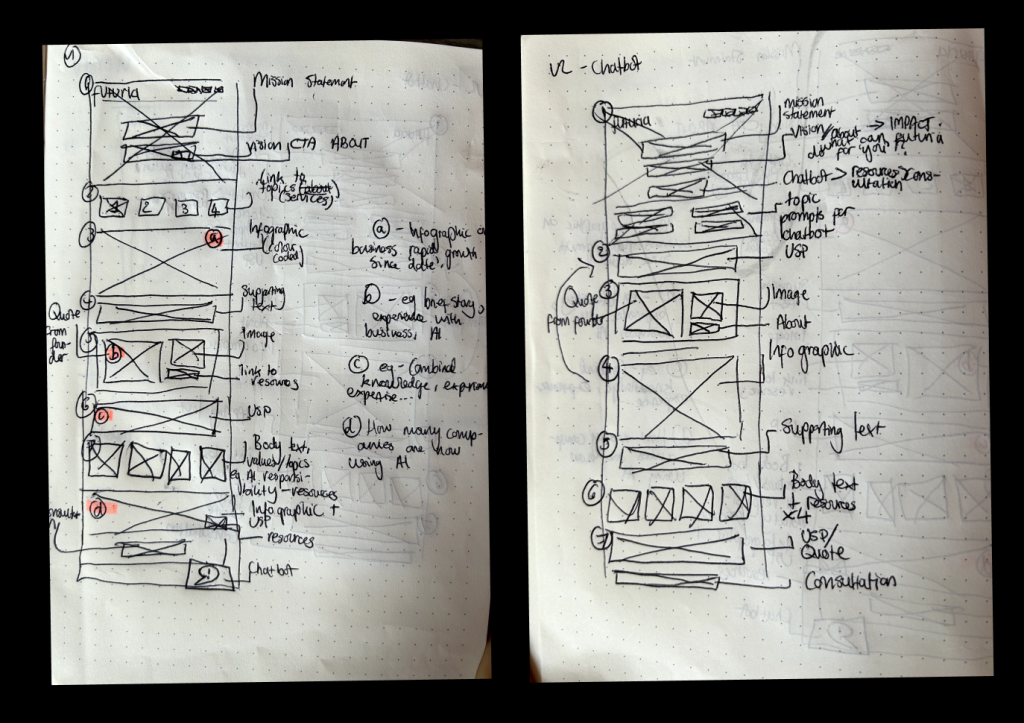 V1
FUTURIA
Mission Statement
Vision
CTA ABOUT
link to
topics (about)
(services)
1 2 3 4
Infographic
(colour
coded)
Supporting
text
Quote
from
foun-
der
Image
link to
resources
USP
Body text,
values/topics
eg AI responsi-
bility – resources
Infographic +
USP
resources
Chatbot
a – Infographic on
business rapid growth
since 'date'.
b – eg brief story,
experience with
business, AI
c – eg – Combined
knowledge, experience
expertise...
d – How many comp-
anies are now
using AI
V2 – Chatbot
FUTURIA
mission
statement
Vision/About → IMPACT.
what can futuria
do for you?
Chatbot → resources/Cons-
ultation
topic
prompts for
chatbot
USP
Quote
from founder
Image
About
Infographic
Supporting text
Body text
+ resources
x4
USP/
Quote
Consultation